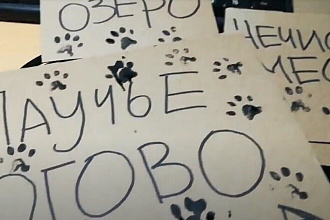 ОЗЕРО
НЕЧИС
МЕС
ПАУЧЬЕ
ОГОВО